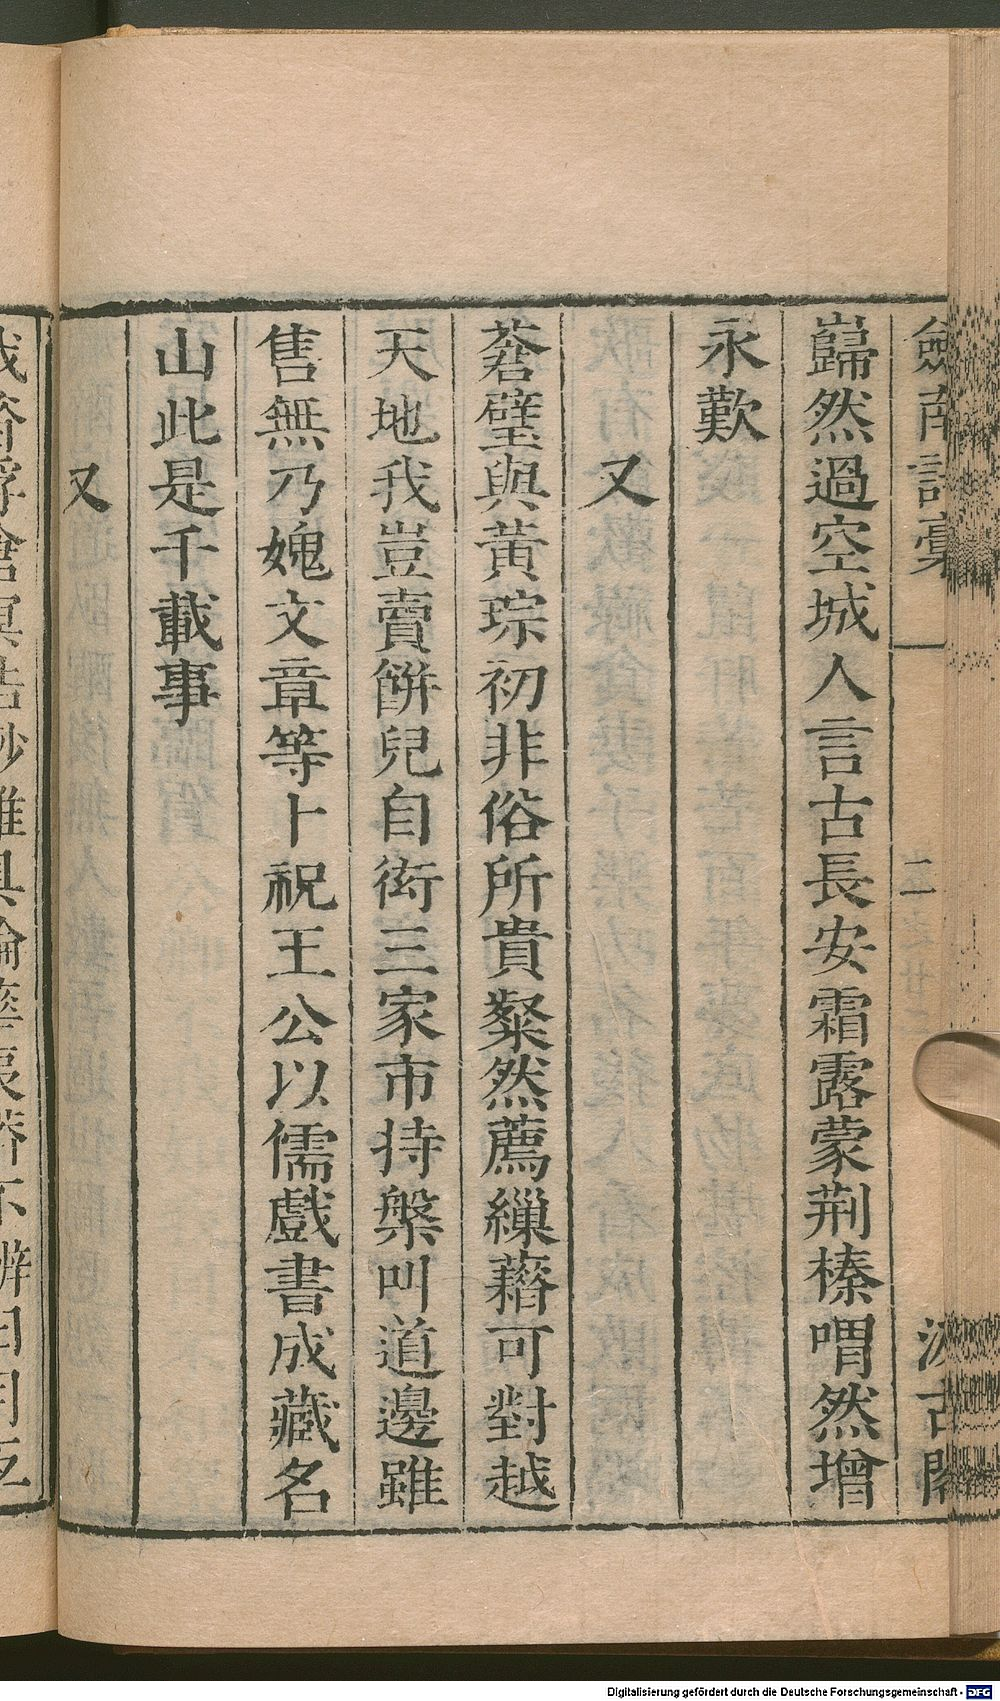 劍南詩稾 二 汲古閣
巋然過空城人言古長安霜露蒙荆榛喟然增
永歎
又
蒼璧與黃琮初非俗所貴粲然薦繅藉可對越
天地我豈賣餅兒自衒三家市持槃叫道邊雖
售無乃媿文章等卜祝王公以儒戲書成藏名
山此是千載事
又
Digitalisierung gefördert durch die Deutsche Forschungsgemeinschaft - DFG